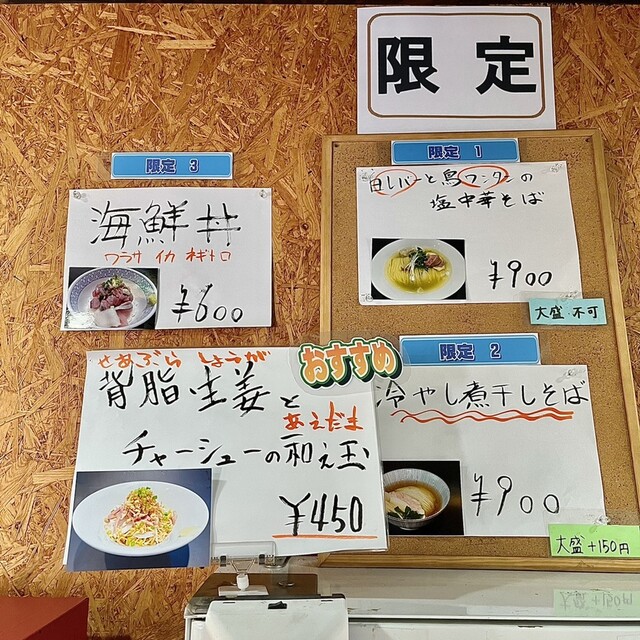 限定
限定 1
白レバーと鳥ワンタンの
塩中華そば
¥900
大盛 不可
限定 3
海鮮丼
ワラサ イカ ネギトロ
¥600
限定 2
冷やし煮干しそば
¥900
大盛 +150円
おすすめ
せあぶら しょうが
背脂生姜と
あえだま
チャーシューの和え玉
¥450